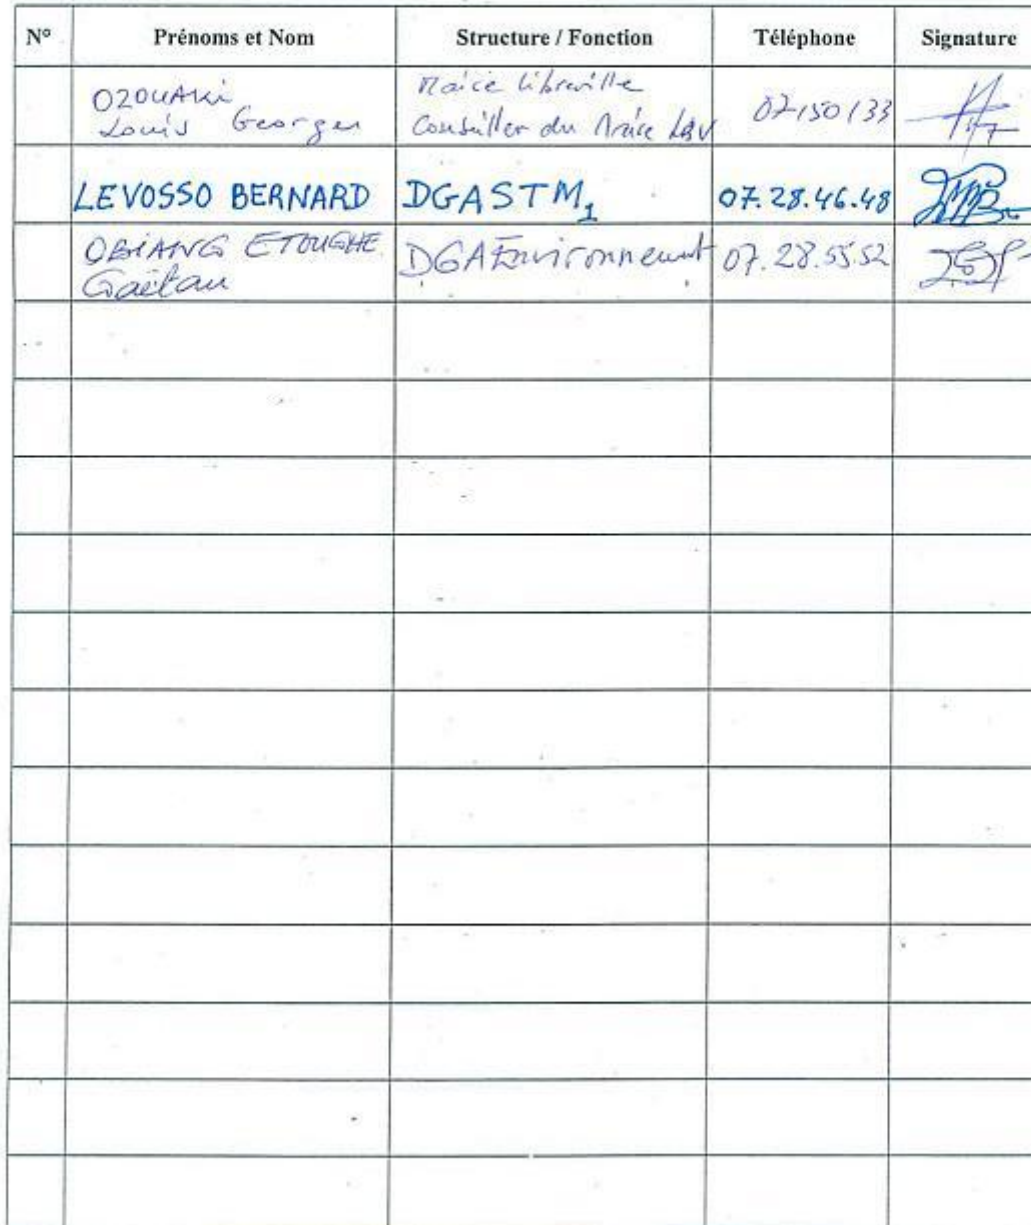 N° Prénoms et Nom Structure / Fonction Téléphone Signature
OZOUAKI Maire Libreville
Louis Georges Conseiller du Maire LBV 07150133
LEVOSSO BERNARD DGASTM1 07.28.46.48
OBIANG ETOUGHE DGAEnvironnement 07.28.55.52
Gaëtan